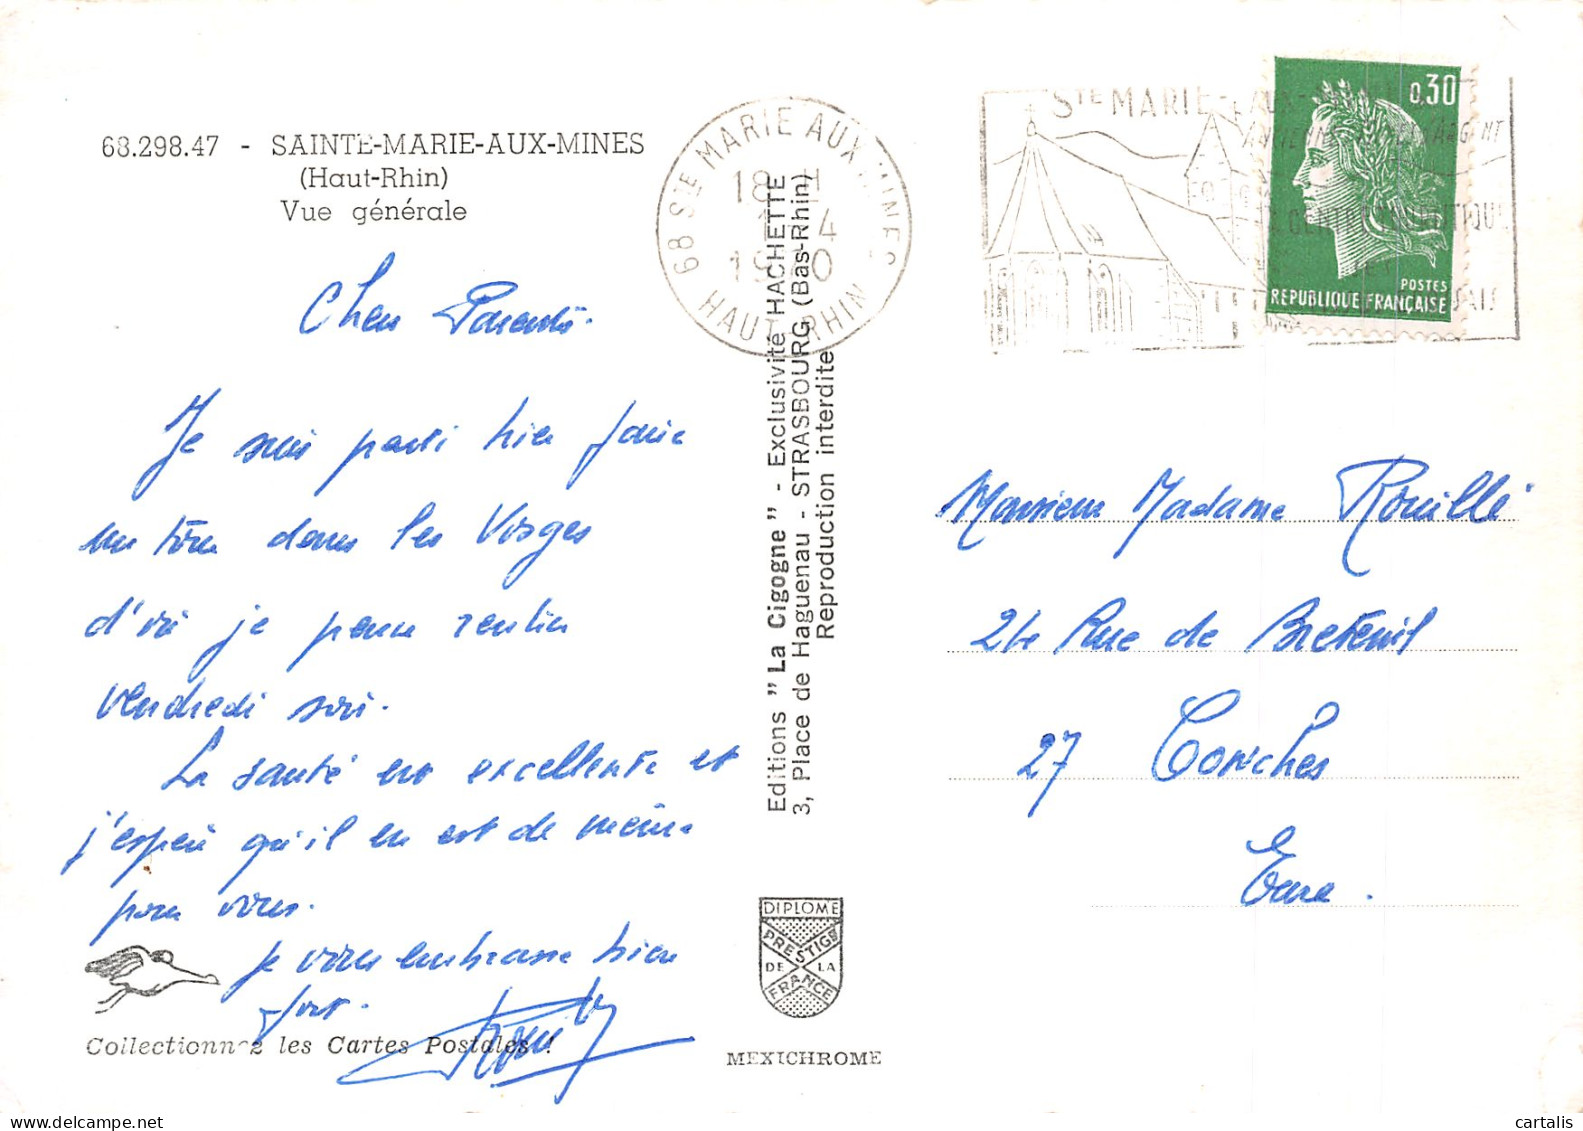 68.298.47 - SAINTE-MARIE-AUX-MINES
(Haut-Rhin)
Vue générale
Chers Parents.
Je suis parti hier faire
un tour dans les Vosges
d'où je pense rentrer
vendredi soir.
La santé est excellente et
j'espère qu'il en est de même
pour vous.
Je vous embrasse bien
fort.
Collectionnez les Cartes Postales !
Editions "La Cigogne" - Exclusivité HACHETTE
3, Place de Haguenau - STRASBOURG (Bas-Rhin)
Reproduction interdite
DIPLOME
PRESTIGE
DE LA
FRANCE
MEXICHROME
68 STE MARIE AUX MINES
18 H
4
1970
HAUT-RHIN
STE MARIE-AUX-
ANCIENNES MINES D'ARGENT
CENTRE TOURISTIQUE
0,30
POSTES
REPUBLIQUE FRANÇAISE
Monsieur Madame Rouillé
24 Rue de Breteuil
27 Conches
Eure.
cartalis